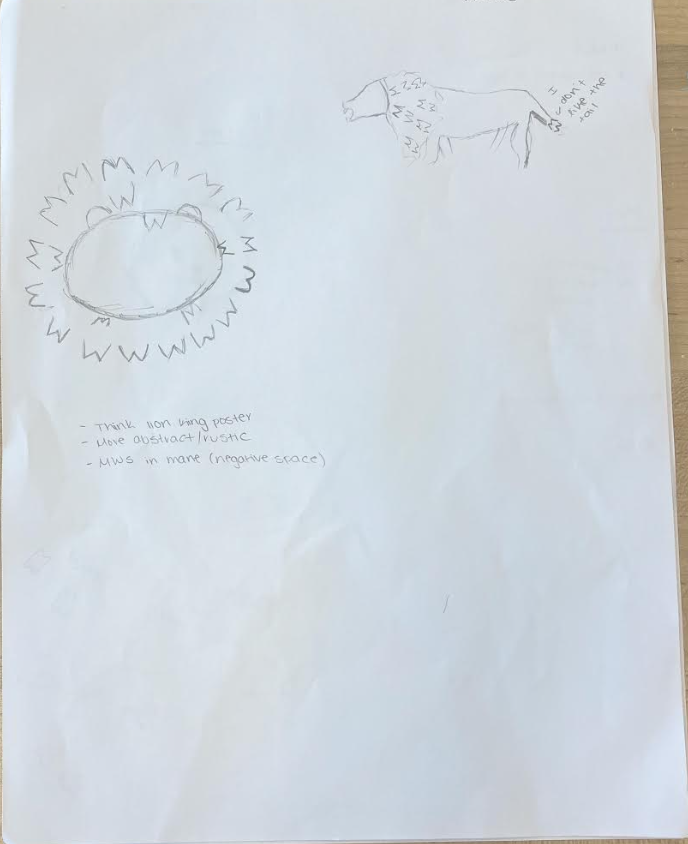 I
don't
like the
tail
- Think lion king poster
- More abstract/rustic
- MWS in mane (negative space)